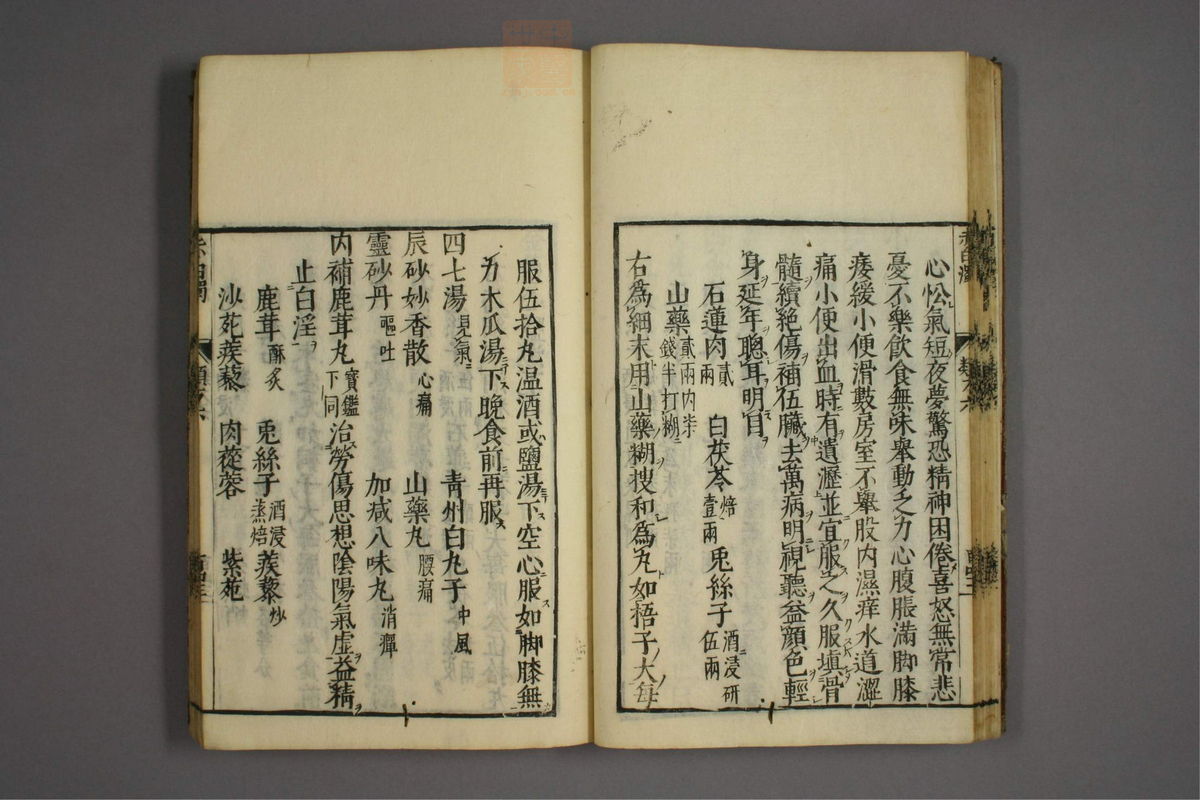 心忪氣短夜夢驚恐精神困倦喜怒無常悲
憂不樂飲食無味舉動乏力心腹脹滿脚膝
痿緩小便滑數房室不舉股内濕痒水道澀
痛小便出血時有遺瀝並宜服之久服塡骨
髓續絶傷補伍臟去萬病明視聽益顔色輕
身延年聰耳明目
石蓮肉貳兩 白茯苓焙壹兩 兎絲子酒浸研伍兩
山藥貳兩内半錢半打糊
右爲細末用山藥糊搜和爲丸如梧子大每
服伍拾丸温酒或鹽湯下空心服如脚膝無
力木瓜湯下晚食前再服
四七湯見氣 青州白丸子中風
辰砂妙香散心痛 山藥丸腰痛
靈砂丹嘔吐 加减八味丸消癉
内補鹿茸丸寶鑑下同 治勞傷思想陰陽氣虚益精
止白淫
鹿茸酥炙 兎絲子酒浸蒸焙 蒺藜炒
沙苑蒺藜 肉蓯蓉 紫菀